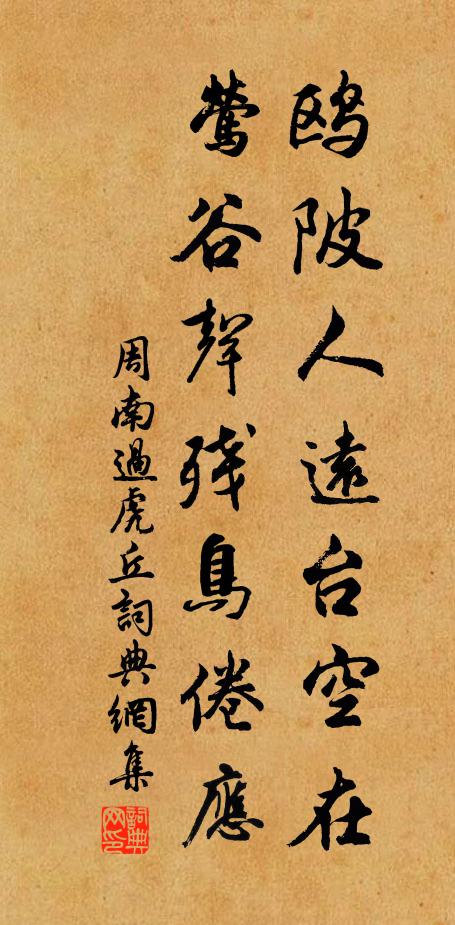 鸥陂人遠台空在
鶯谷聲残鳥倦應
周南過虎丘詞典網集
詞典网印